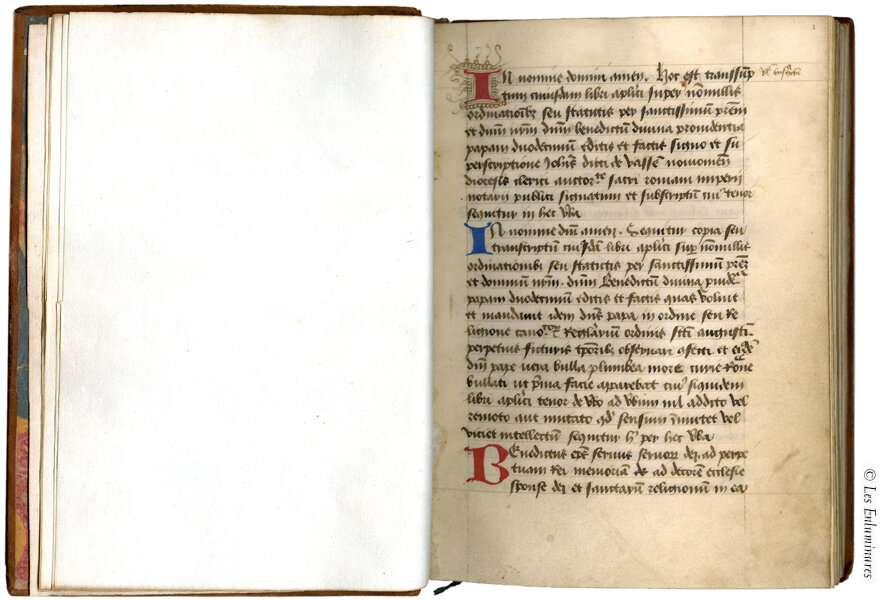 In nomine domini amen. Hoc est transsũp
tum cuiusdam libri aplici super nõnullis
ordinationibz seu statutis per sanctissimũ prẽm
et dnũ nrm̃ dnm̃ benedictũ diuina prouidentia
papam duodecimũ editis et factis signo et su
perscriptione Johis dicti de vassen nouiomeñ
diocesis clerici auctorte sacri romani imperii
notarii publici signatum et subscriptũ cui9 tenor
sequitur in hec vba
In nomine dnĩ amen. Sequitur copia seu
transcriptũ cuiusdã libri aplici sup nõnullis
ordinationibz seu statutis per sanctissimũ prẽm
et dominum nrm̃. dnm̃ Benedictũ diuina puidẽ
papam duodecimũ editis et factis quas voluit
et mandauit idem dns̃ papa in ordine seu re
ligione canocorum Regularium ordinis scti augusti.
perpetuis futuris tpõribz obseruari
dnĩ pape vera bulla plumbea more curie Roñe
bullati ut prima facie apparebat cui9 siquidem
libri aplici tenor de vbo ad vbum nil addito vel
remoto aut mutato qd sensum ĩmutet vel
viciet intellectũ sequitur per hec vba
Benedictus eps̃ seruus seruorz dei. ad perpe
tuam Rei memoriam ad decorem ecclesie
sponse dei et sanctarũ religionum in ea
© Les Enluminures